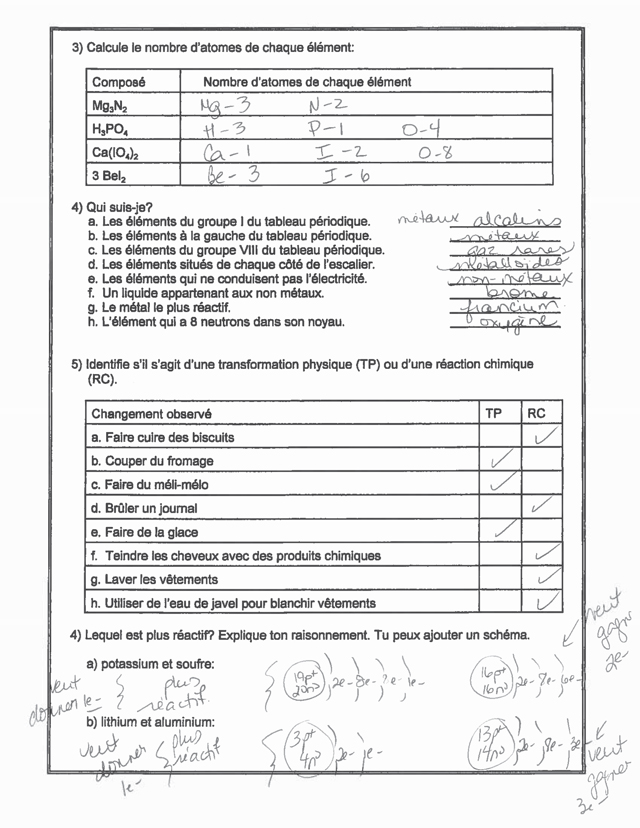 3) Calcule le nombre d'atomes de chaque élément:
Composé Nombre d'atomes de chaque élément
Mg₃N₂ Mg - 3 N - 2
H₃PO₄ H - 3 P - 1 O - 4
Ca(IO₄)₂ Ca - 1 I - 2 O - 8
3 BeI₂ Be - 3 I - 6
4) Qui suis-je?
a. Les éléments du groupe I du tableau périodique. métaux alcalins
b. Les éléments à la gauche du tableau périodique. métaux
c. Les éléments du groupe VIII du tableau périodique. gaz rares
d. Les éléments situés de chaque côté de l'escalier. métalloïdes
e. Les éléments qui ne conduisent pas l'électricité. non-métaux
f. Un liquide appartenant aux non métaux. brome
g. Le métal le plus réactif. francium
h. L'élément qui a 8 neutrons dans son noyau. oxygène
5) Identifie s'il s'agit d'une transformation physique (TP) ou d'une réaction chimique
(RC).
Changement observé TP RC
a. Faire cuire des biscuits ✓
b. Couper du fromage ✓
c. Faire du méli-mélo ✓
d. Brûler un journal ✓
e. Faire de la glace ✓
f. Teindre les cheveux avec des produits chimiques ✓
g. Laver les vêtements ✓
h. Utiliser de l'eau de javel pour blanchir vêtements ✓
4) Lequel est plus réactif? Explique ton raisonnement. Tu peux ajouter un schéma.
a) potassium et soufre:
veut
donner 1e-
plus
réactif
19p+
20n°
2e- 8e- 8e- 1e-
16p+
16n°
2e- 8e- 6e-
veut
gagner
2e-
b) lithium et aluminium:
veut
donner
1e-
plus
réactif
3p+
4n°
2e- 1e-
13p+
14n°
2e- 8e- 3e-
veut
gagner
3e-